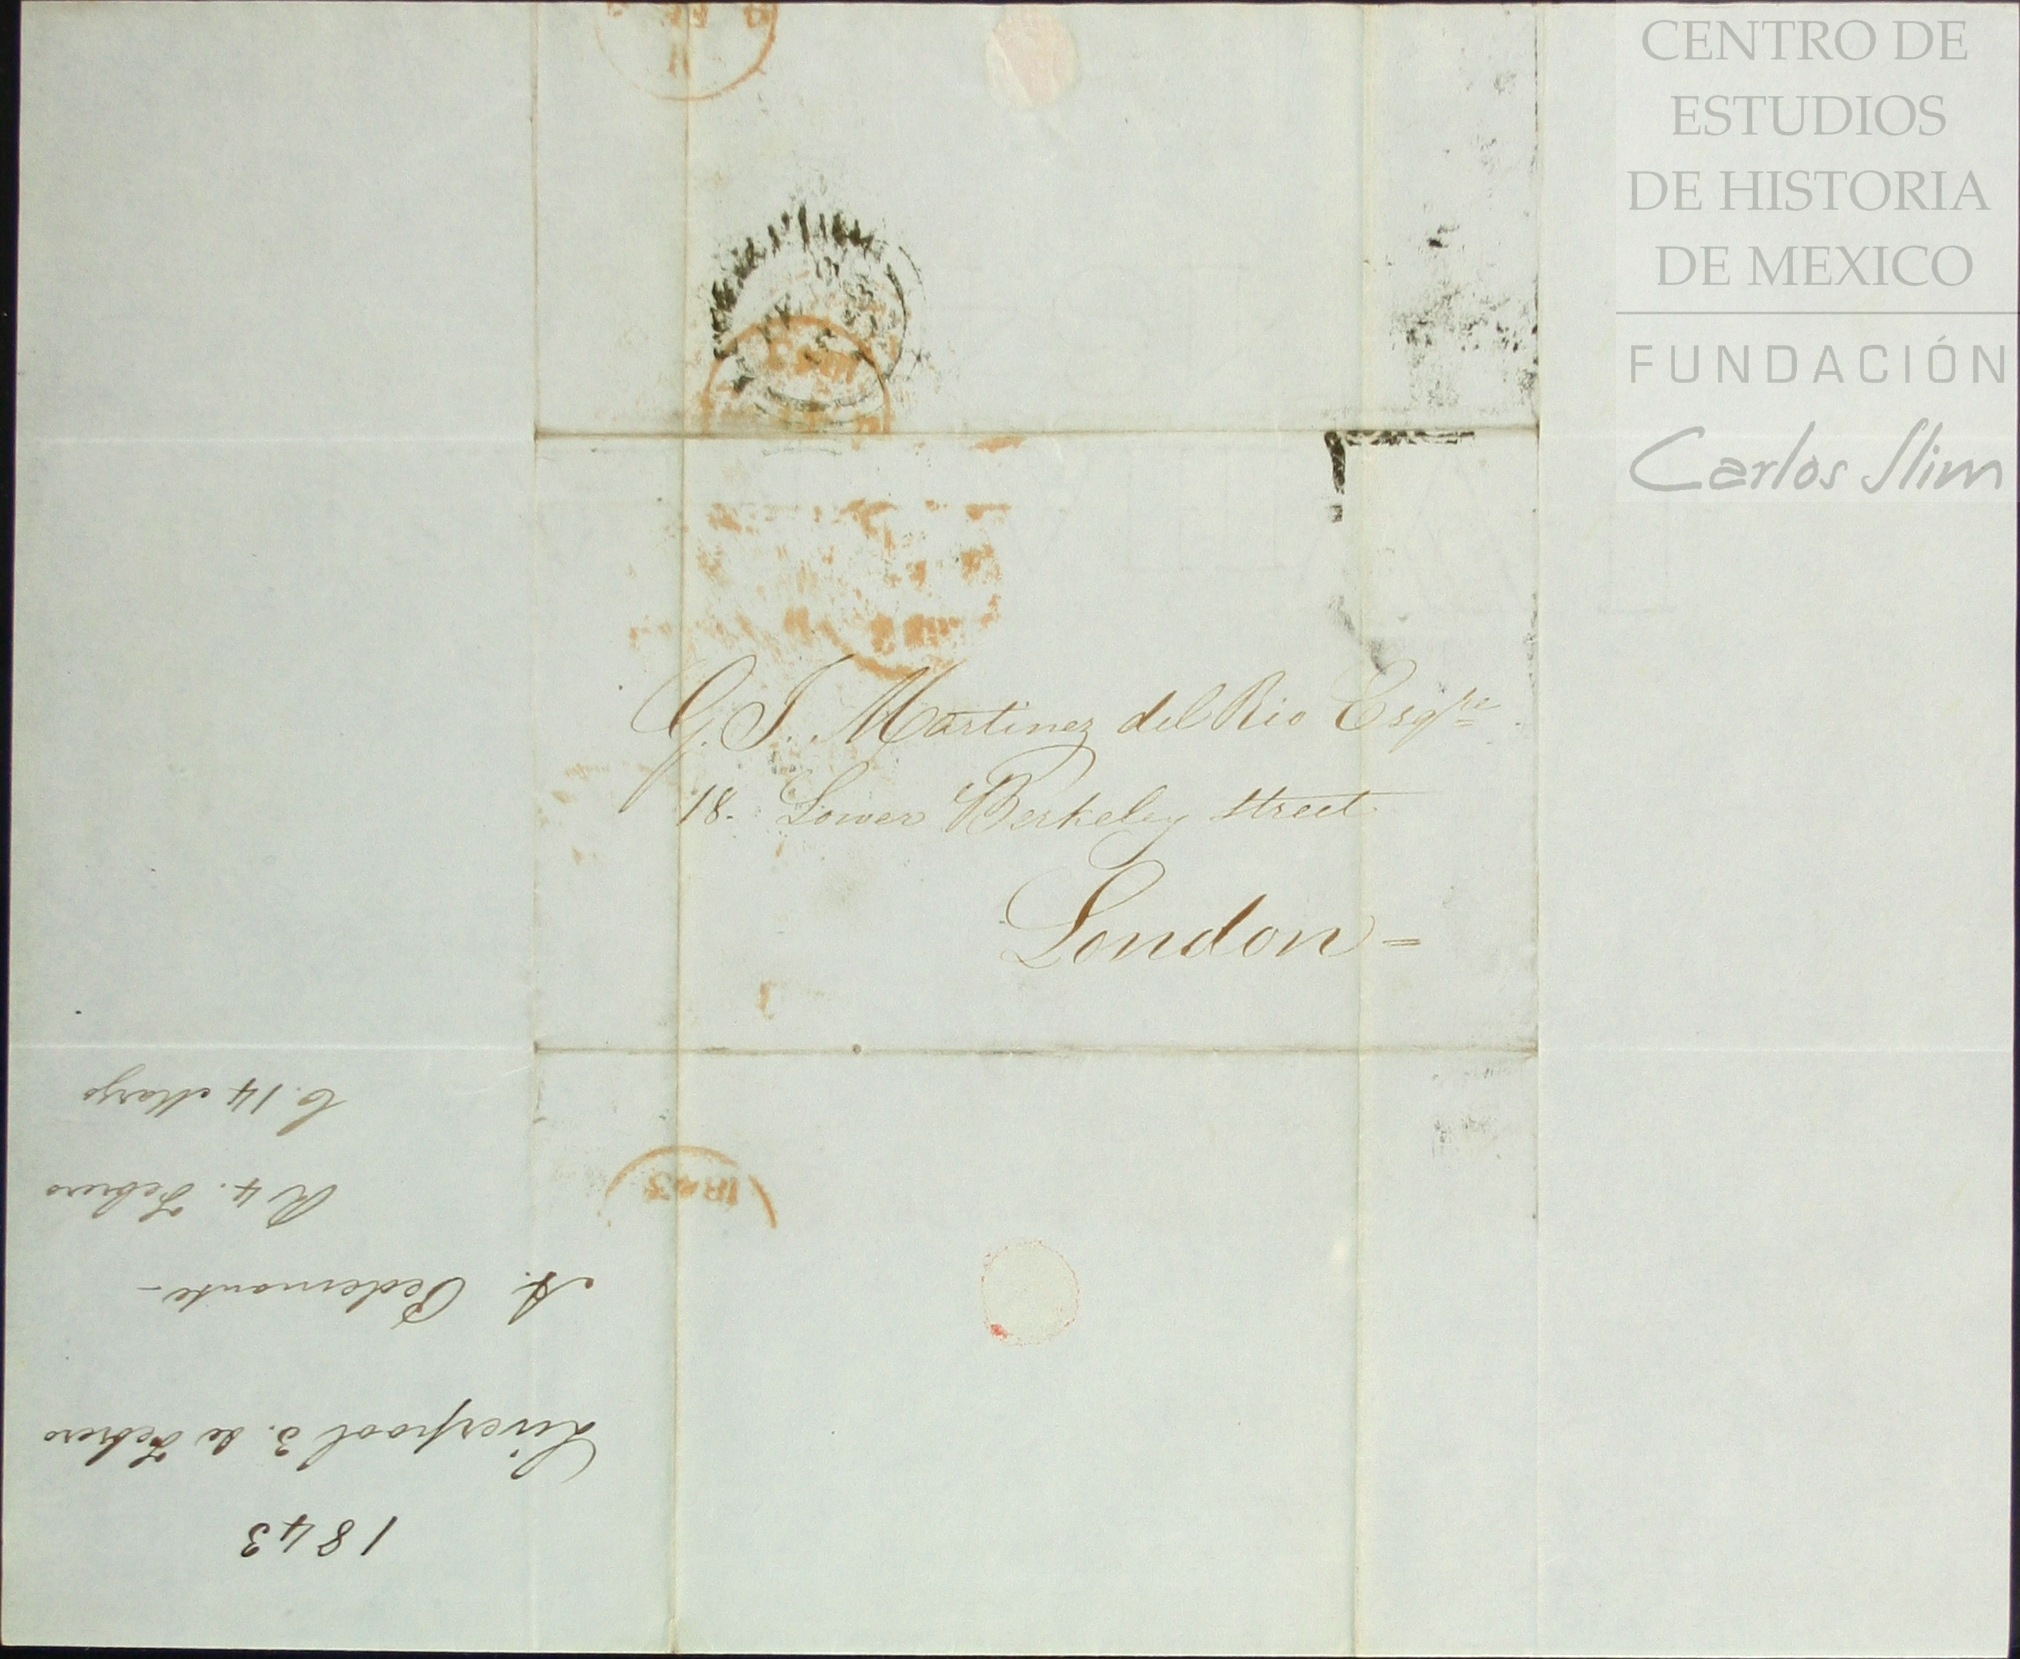 CENTRO DE
ESTUDIOS
DE HISTORIA
DE MEXICO
FUNDACIÓN
Carlos Slim
G. J. Martinez del Rio Esqre
18. Lower Berkeley street
London =
1843
Liverpool 3. de Febrero
A. Pedemonte -
R 4. Febrero
C. 14 Marzo
1843